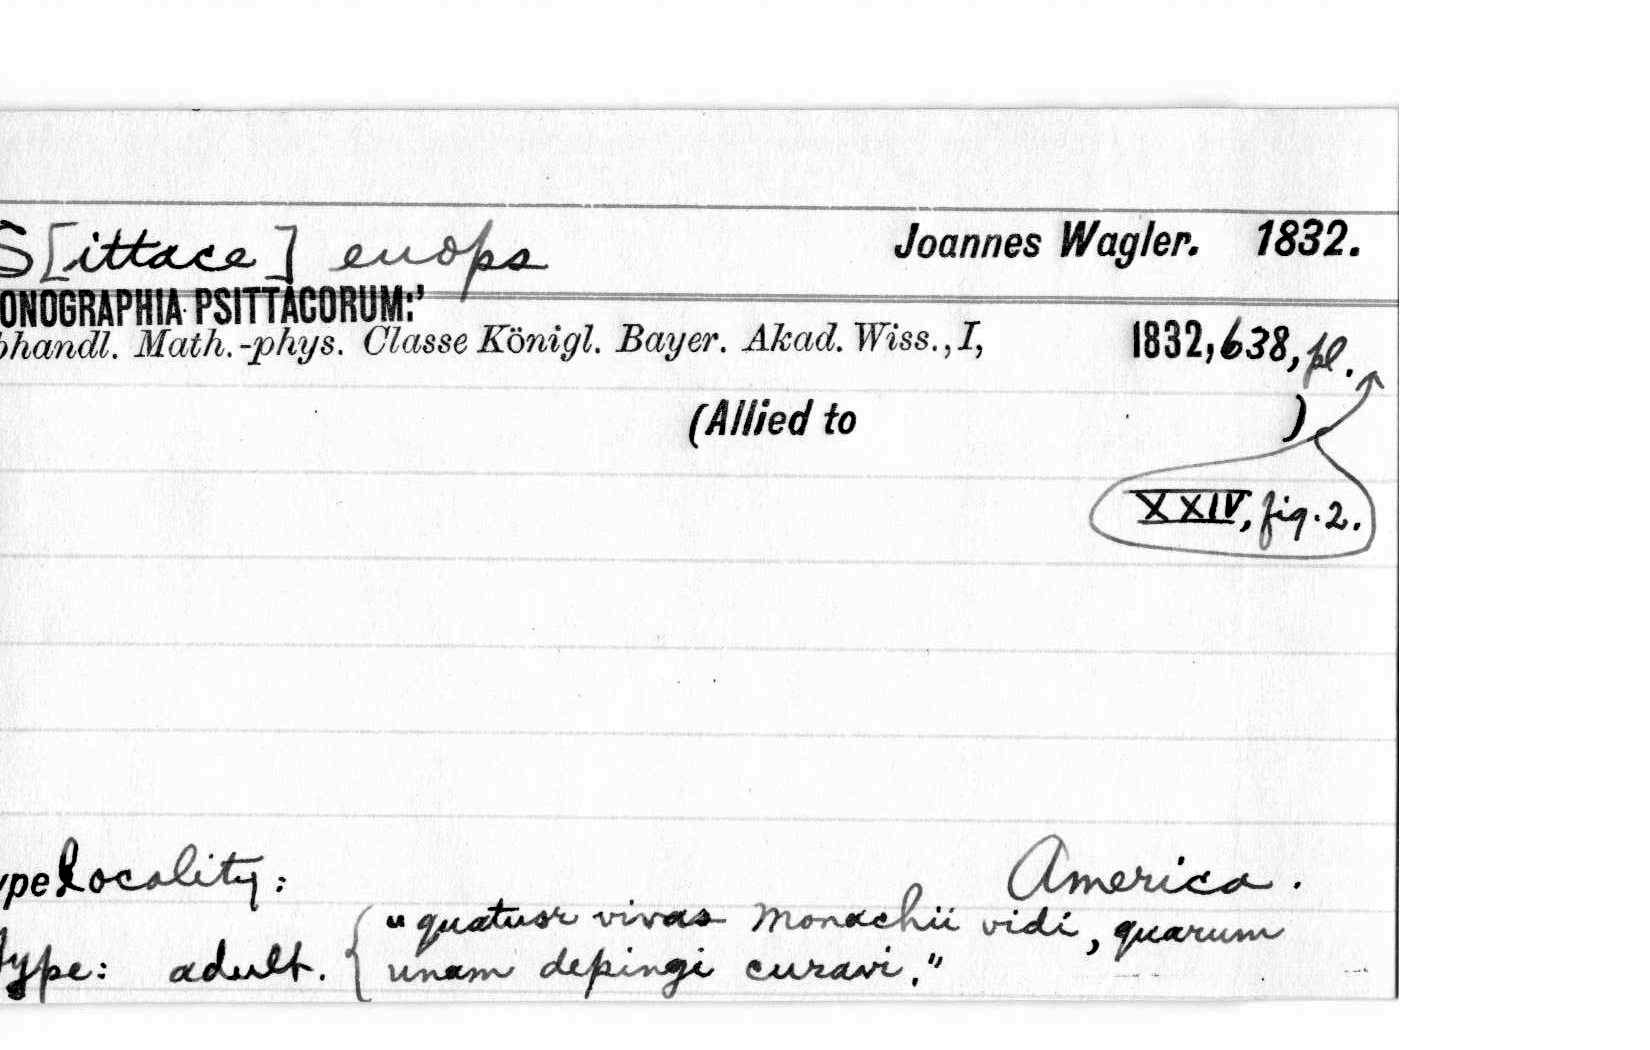 S[ittace] euops Joannes Wagler. 1832.
ONOGRAPHIA PSITTACORUM:'
bhandl. Math.-phys. Classe Königl. Bayer. Akad. Wiss., I, 1832, 638, pl.
(Allied to )
XXIV, fig. 2.
ype Locality: America.
"quatuor vivas Monachii vidi, quarum
Type: adult. unam depingi curavi."